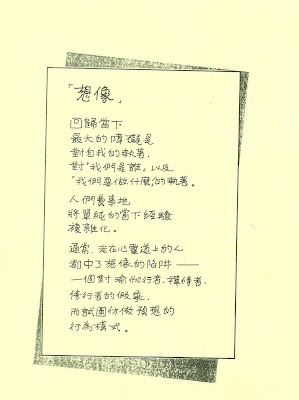 「想像」
回歸當下
最大的障礙是
對自我的執著.
對「我們是誰」以及
「我們要做什麼」的執著.
人們費事地
將單純的當下經驗
複雜化。
通常,走在心靈道上的人
都中了想像的陷阱——
一個對瑜伽行者.禪修者.
修行者的假象.
而試圖仿做預想的
行為模式。